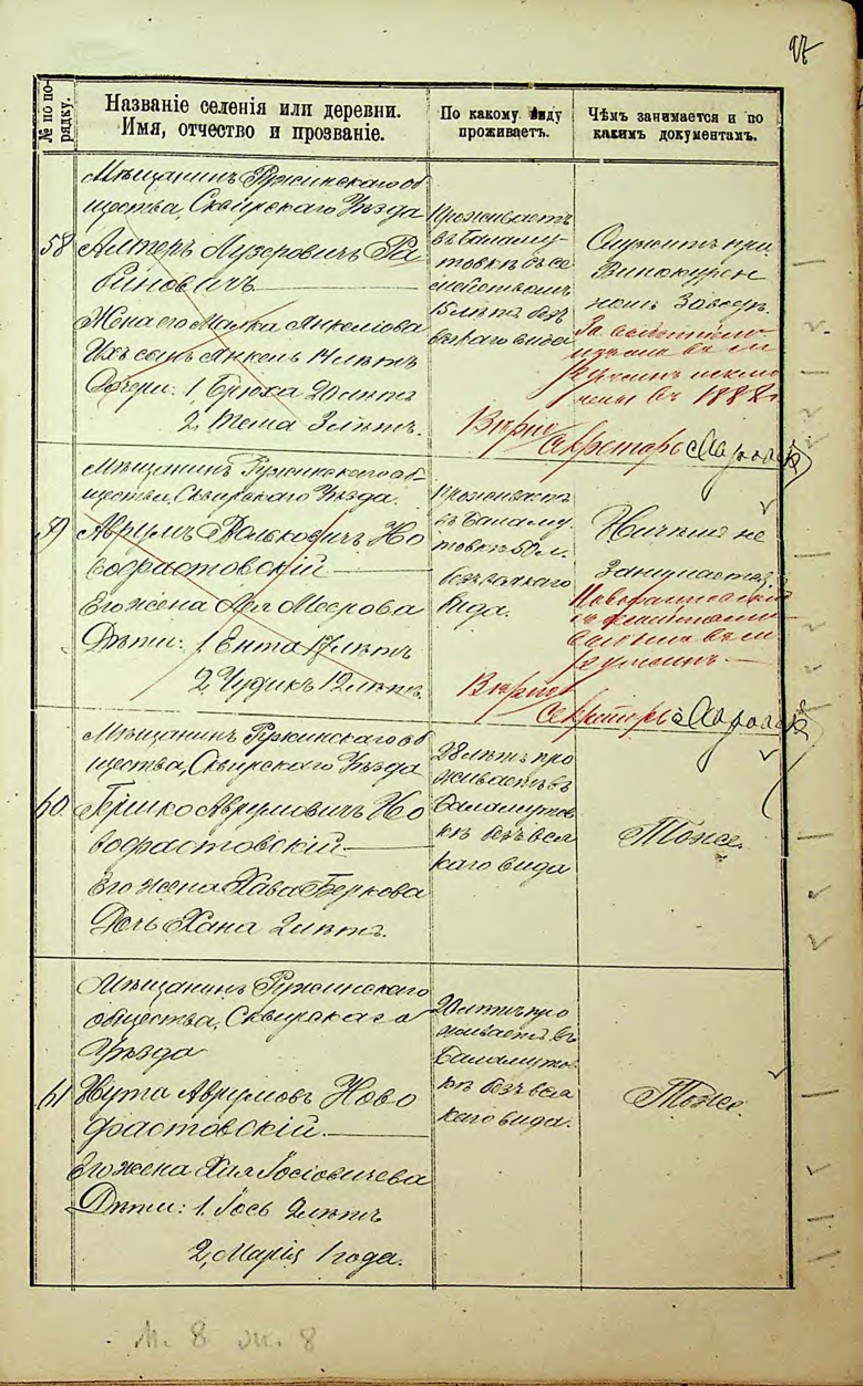 97
№ по по-
рядку.
Названіе селенія или деревни.
Имя, отчество и прозваніе.
По какому виду
проживаетъ.
Чѣмъ занимается и по
какимъ документамъ.
58
Мѣщанинъ Ружинскаго об
щества, Сквирскаго Уѣзда
Алтеръ Лузеровичъ Ра
биновичъ
Жена его Малка Анкеліова
Ихъ сынъ Анкель 14 лѣтъ
Дочери: 1 Брюха 20 лѣтъ
2, Тема 3 лѣтъ.
Проживаетъ
въ Баламу-
товкѣ съ се
мействомъ
15 лѣтъ безъ
всякаго вида
Служитъ при
Винокурен
номъ Заводѣ.
исклю
чены въ 1888 г
Вѣрно
Секретарь
59
Мѣщанинъ Ружинскаго об-
щества, Сквирскаго Уѣзда.
Аврумъ Вольковичъ Но
вофастовскій
Его жена Меерова
Дѣти: 1 Ента 17 лѣтъ
2, Чудикъ 12 лѣтъ.
Проживаетъ
въ Баламу
товкѣ 50 л.
безъ всякаго
вида.
Ничѣмъ не
занимается.
Новофастовскій
съ семействомъ
Вѣрно
Секретарь
60
Мѣщанинъ Ружинскаго об
щества, Сквирскаго Уѣзда
Гершко Аврумовичъ Но
вофастовскій
Его жена Хава Беркова
Дочь Хана 2 лѣтъ.
28 лѣтъ про
живаетъ въ
Баламутов
кѣ безъ вся
каго вида
Тоже.
61
Мѣщанинъ Ружинскаго
общества, Сквирскаго
Уѣзда
Нута Аврумовъ Ново
фастовскій
Его жена Хая Іосіовичева
Дѣти: 1. Іось 2 лѣтъ
2, Марія 1 года.
20 лѣтъ про
живаетъ въ
Баламутов
кѣ безъ вся
каго вида.
Тоже.
м. 8 ж. 8